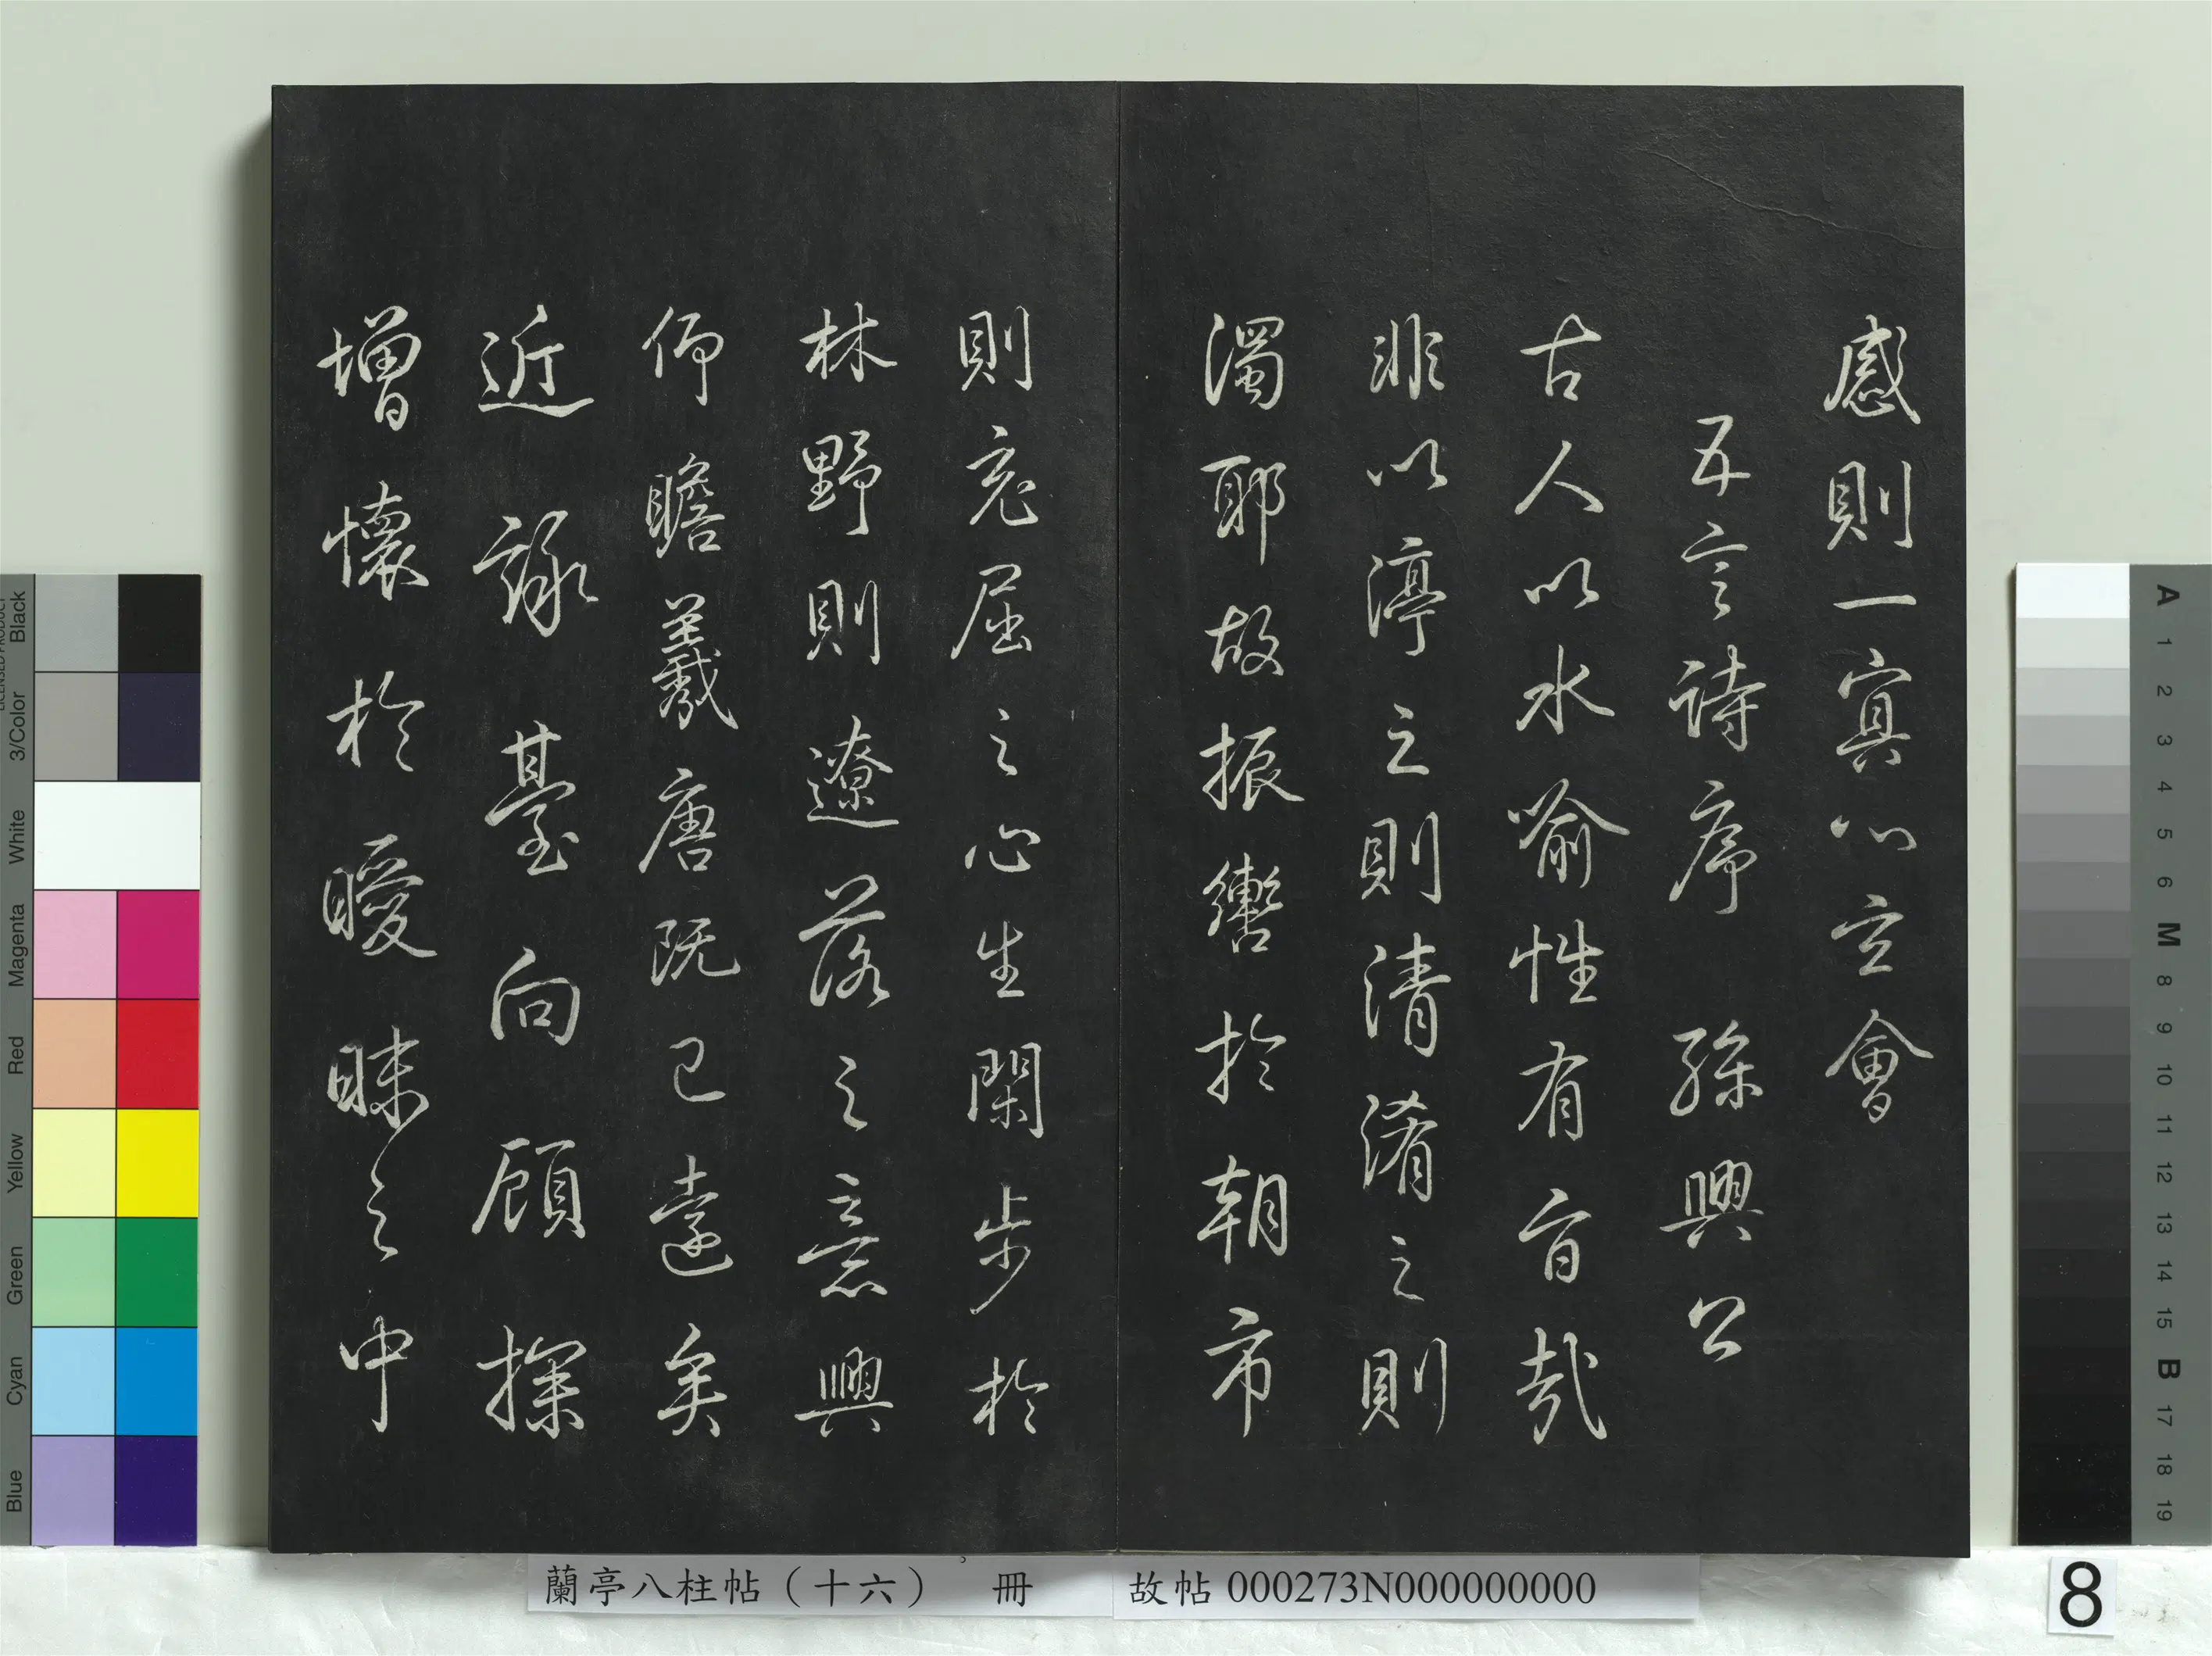 感則一冥心空會
五言詩序 孫興公
古人以水喻性有旨哉
非以渟之則清淆之則
濁耶故振轡於朝市
則充屈之心生閑步於
林野則遼落之意興
仰瞻羲唐既已遠矣
近詠臺向顧探
增懷於曖昧之中
蘭亭八柱帖（十六） 冊
故帖 000273N000000000
8
Black
3/Color
White
Magenta
Red
Yellow
Green
Cyan
Blue
A
1
2
3
4
5
6
M
8
9
10
11
12
13
14
15
B
17
18
19